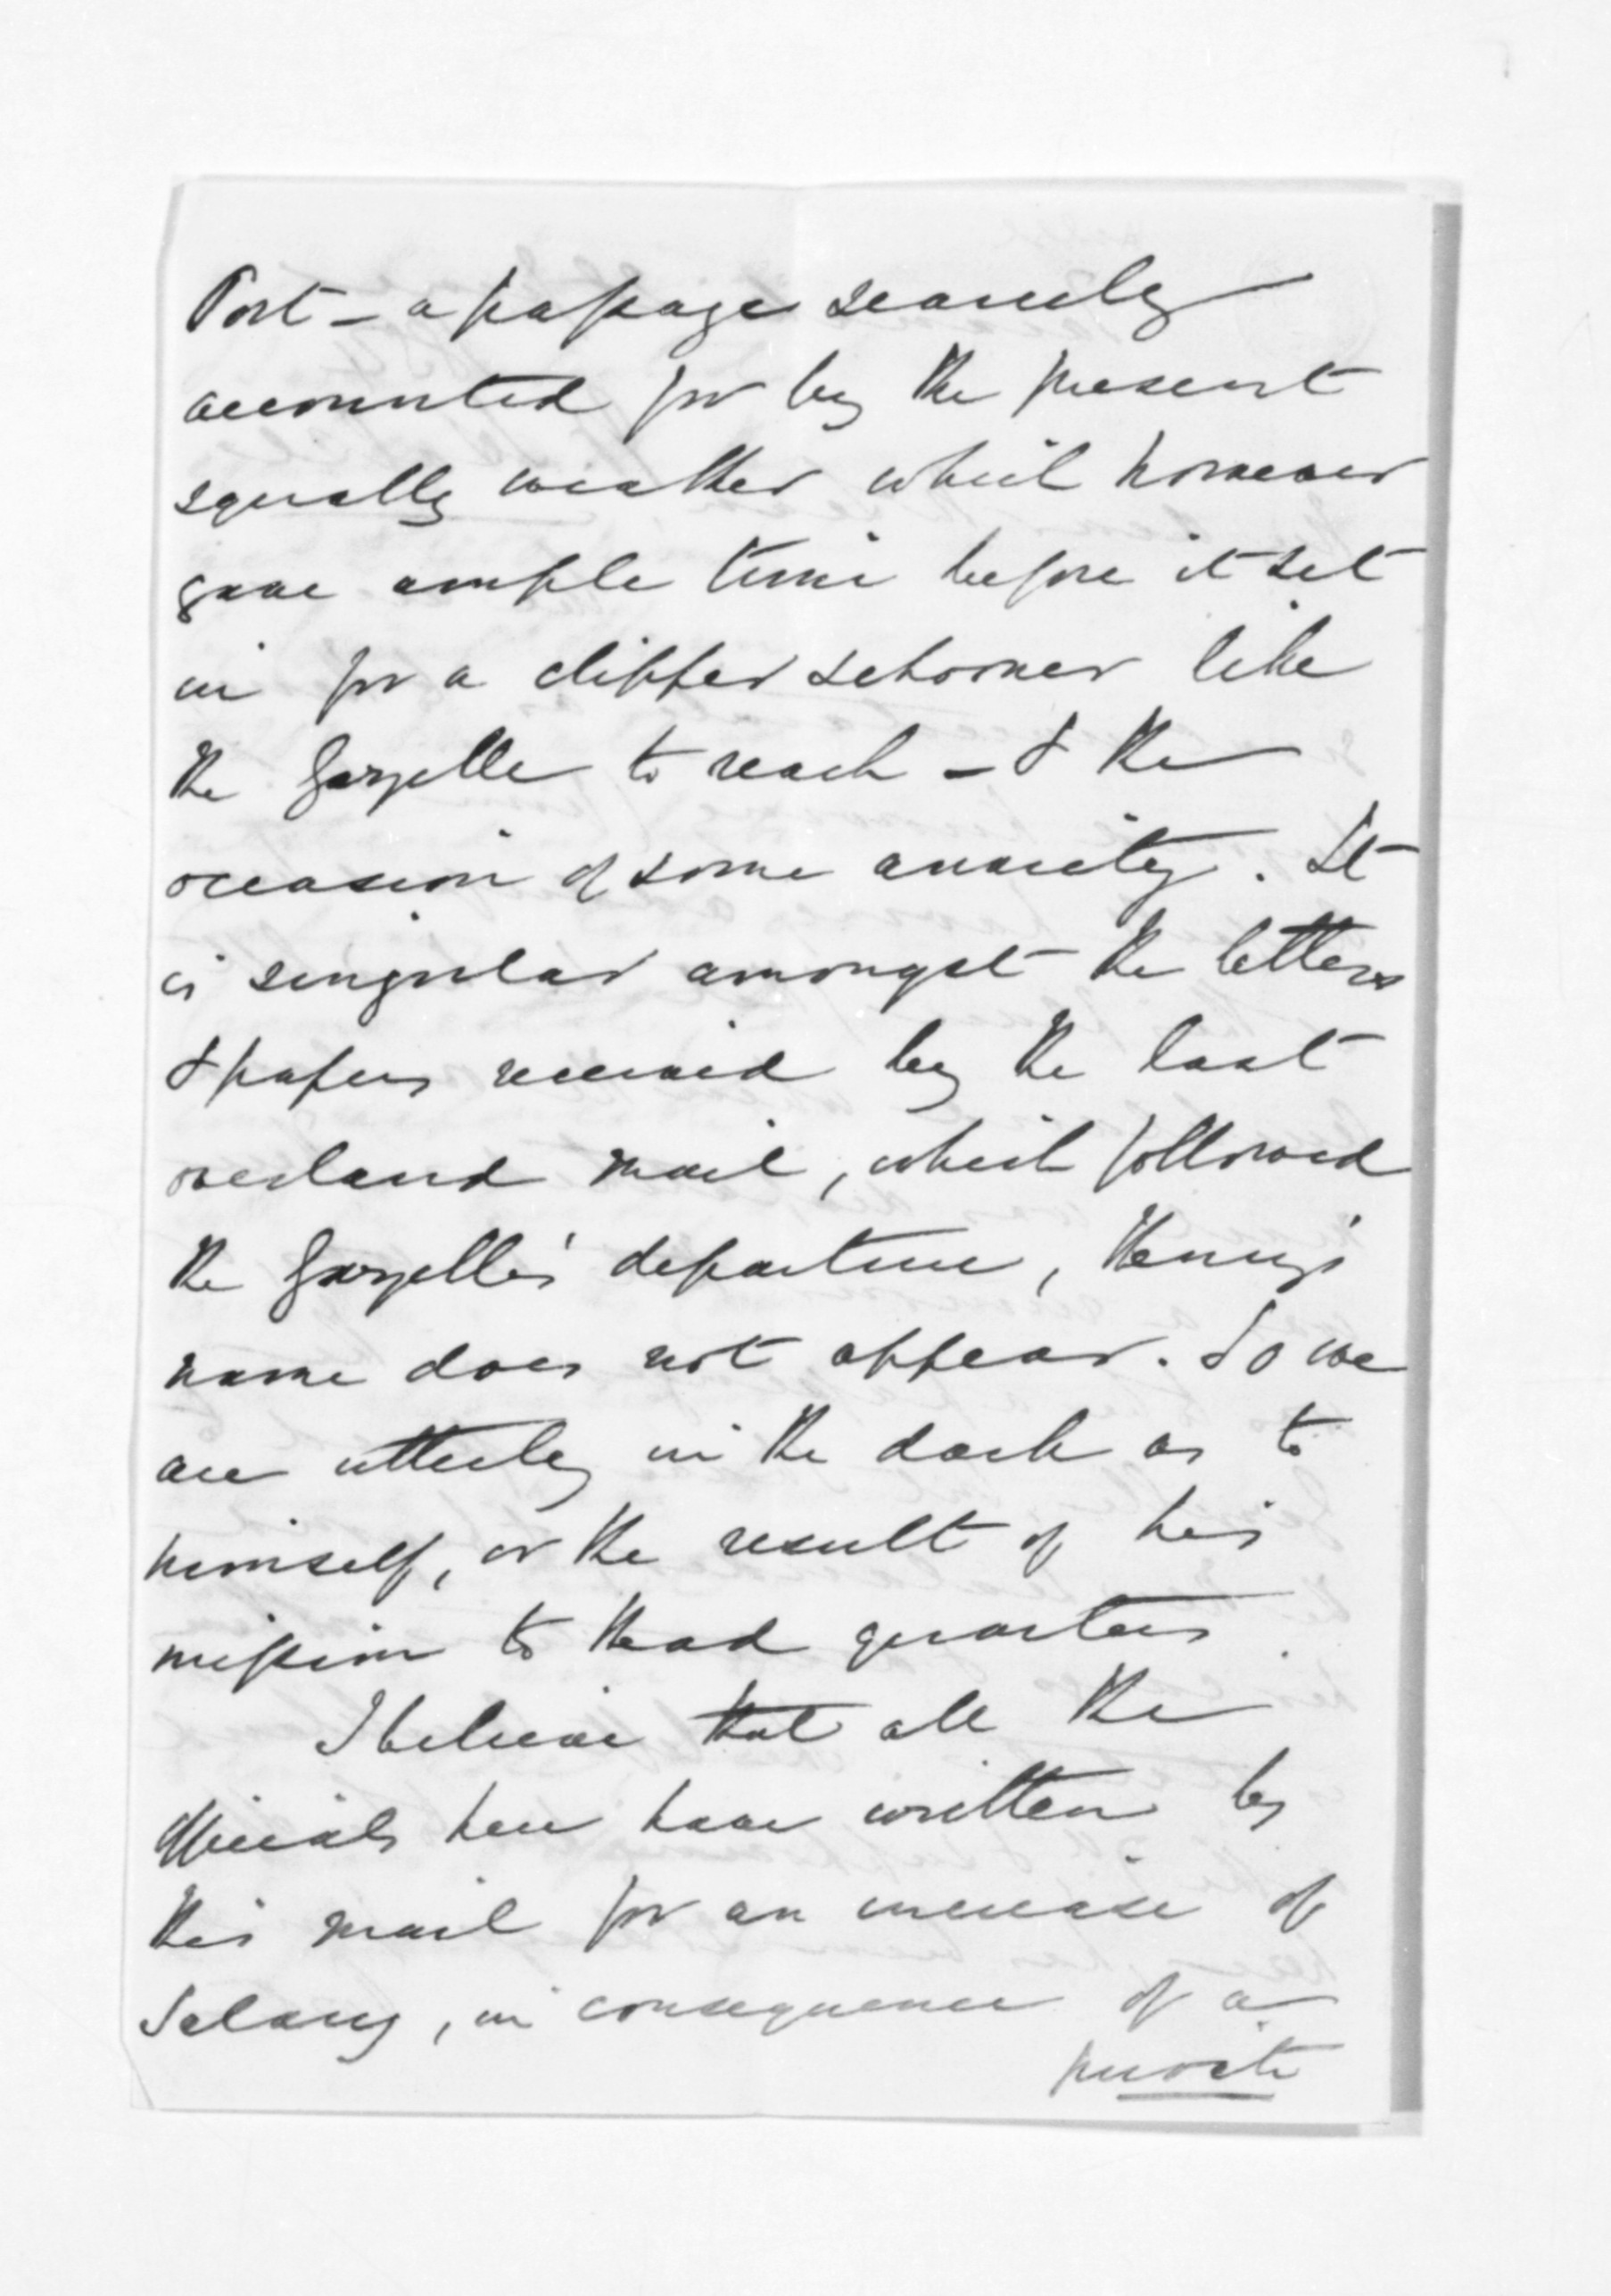 Port – a passage scarcely
accounted for by the present
squally weather which however
gave ample time before it set
in for a clipper schooner like
the Gazelle to reach – & the
occasion of some anxiety. It
is singular amongst the letters
& papers received by the last
overland mail, which followed
the Gazelle's departure, Henry's
name does not appear. So we
are utterly in the dark as to
himself, or the result of his
mission to Head quarters.
I believe that all the
officials here have written by
this mail for an increase of
Salary, in consequence of a
private